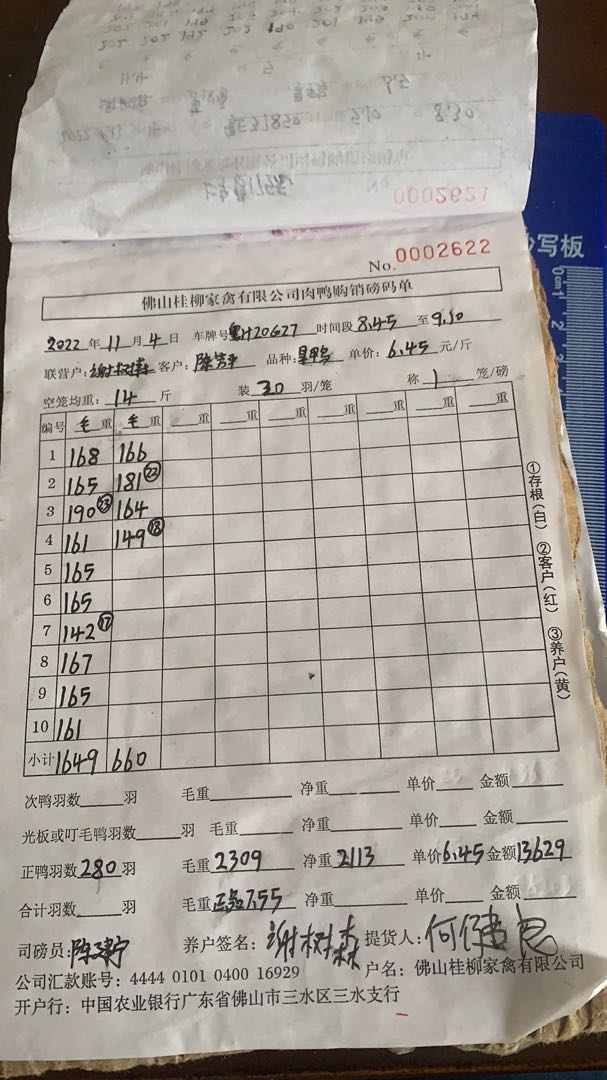 0002621
抄写板
No. 0002622
佛山桂柳家禽有限公司肉鸭购销磅码单
2022 年 11 月 4 日 车牌号 粤H20G27 时间段 8.45 至 9.10
联营户: 谢树森 客户: 品种: 单价: 6.45 元/斤
空笼均重: 14 斤 装 20 羽/笼 称 1 笼/磅
编号 毛重 毛重 重 重 重 重 重 重
1 168 166
2 165 181 ㉒
3 190 ㉓ 164
4 161 149 ⑱
5 165
6 165
7 142 ⑰
8 167
9 165
10 161
小计 1649 660
①存根(白) ②客户(红) ③养户(黄)
次鸭羽数 羽 毛重 净重 单价 金额
光板或叮毛鸭羽数 羽 毛重 净重 单价 金额
正鸭羽数 280 羽 毛重 2309 净重 2113 单价 6.45 金额 13629
合计羽数 羽 毛重 正品7.55 净重 单价 金额
司磅员: 养户签名: 谢树森 提货人: 何健
公司汇款账号: 4444 0101 0400 16929 户名: 佛山桂柳家禽有限公司
开户行: 中国农业银行广东省佛山市三水区三水支行